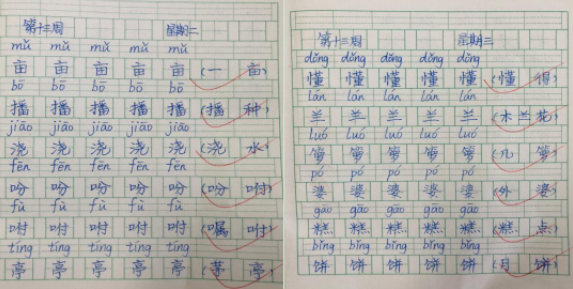 第十三周 星期二
mǔ mǔ mǔ mǔ mǔ
亩 亩 亩 亩 亩 (一 亩)
bō bō bō bō
播 播 播 播 播 (播 种)
jiāo jiāo jiāo jiāo jiāo
浇 浇 浇 浇 浇 (浇 水)
fēn fēn fēn fēn fēn
吩 吩 吩 吩 吩 (吩 咐)
fù fù fù fù fù
咐 咐 咐 咐 咐 (嘱 咐)
tíng tíng tíng tíng tíng
亭 亭 亭 亭 亭 (茅 亭)
第十三周 星期三
dǒng dǒng dǒng dǒng dǒng
懂 懂 懂 懂 懂 (懂 得)
lán lán lán lán lán
兰 兰 兰 兰 兰 (木 兰 花)
luó luó luó luó luó
箩 箩 箩 箩 箩 (几 箩)
pó pó pó pó pó
婆 婆 婆 婆 婆 (外 婆)
gāo gāo gāo gāo gāo
糕 糕 糕 糕 糕 (糕 点)
bǐng bǐng bǐng bǐng bǐng
饼 饼 饼 饼 饼 (月 饼)